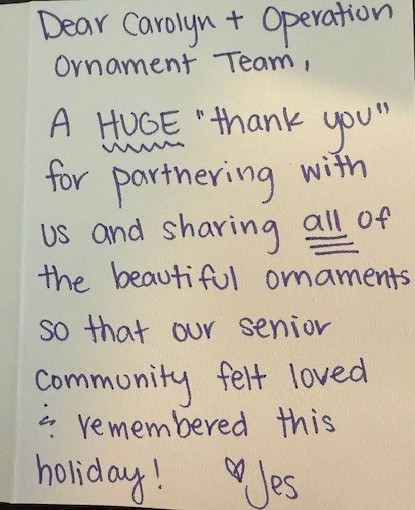 Dear Carolyn + Operation
Ornament Team,
A HUGE "thank you"
for partnering with
us and sharing all of
the beautiful ornaments
so that our senior
community felt loved
& remembered this
holiday! ♡ Jes